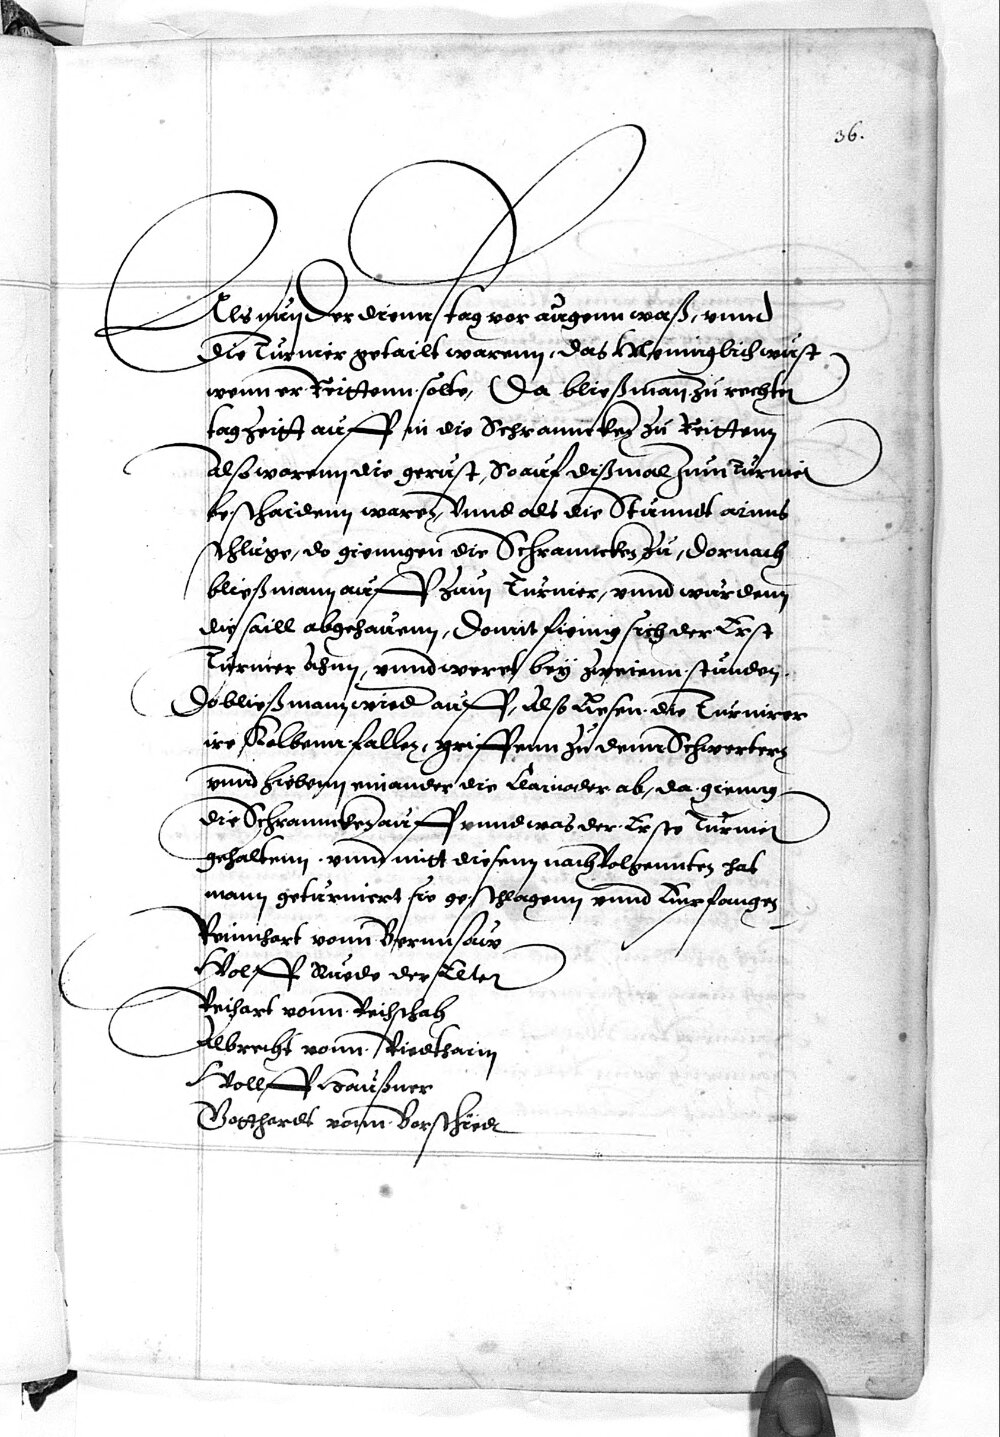 36.
Als nun der dienstag vor augenn waß, vnnd
die Turnier getailt warenn, das Meniglich wust
wenn er Reittenn solte, Da bließ man zu rechter
tag Zeitt auff in die Schrannckhen zu Reittenn
also warenn die gerust, So auf dißmal zum Turnier
beschaidenn waren, Vnnd als die Stunndt ainns
schluge, do giengen die Schranncken zu, Dornach
bließ mann auff zum Turnier, vnnd wurdenn
die saill abgehauenn, Domit fienng sich der Erst
Turnier Ahnn, vnnd weret bey zweienn stunden
Do bließ mann wied auff, Also liesen die Turnirer
ire Kolbenn fallen, griffenn zu denn Schwertern
vnnd hiebenn einander die Clainoder ab, da gienng
die Schrannckhen auff vnnd was der Erste Turnier
gehaltenn vnnd mitt diesenn nach Volgennten hat
mann geturniert sie geschlagenn vnnd Empfangen
Reinhart vonn
Wolff der Elter
Reihart vonn
Albrecht vonn Riedthaim
Wolff
Gotthardt vonn